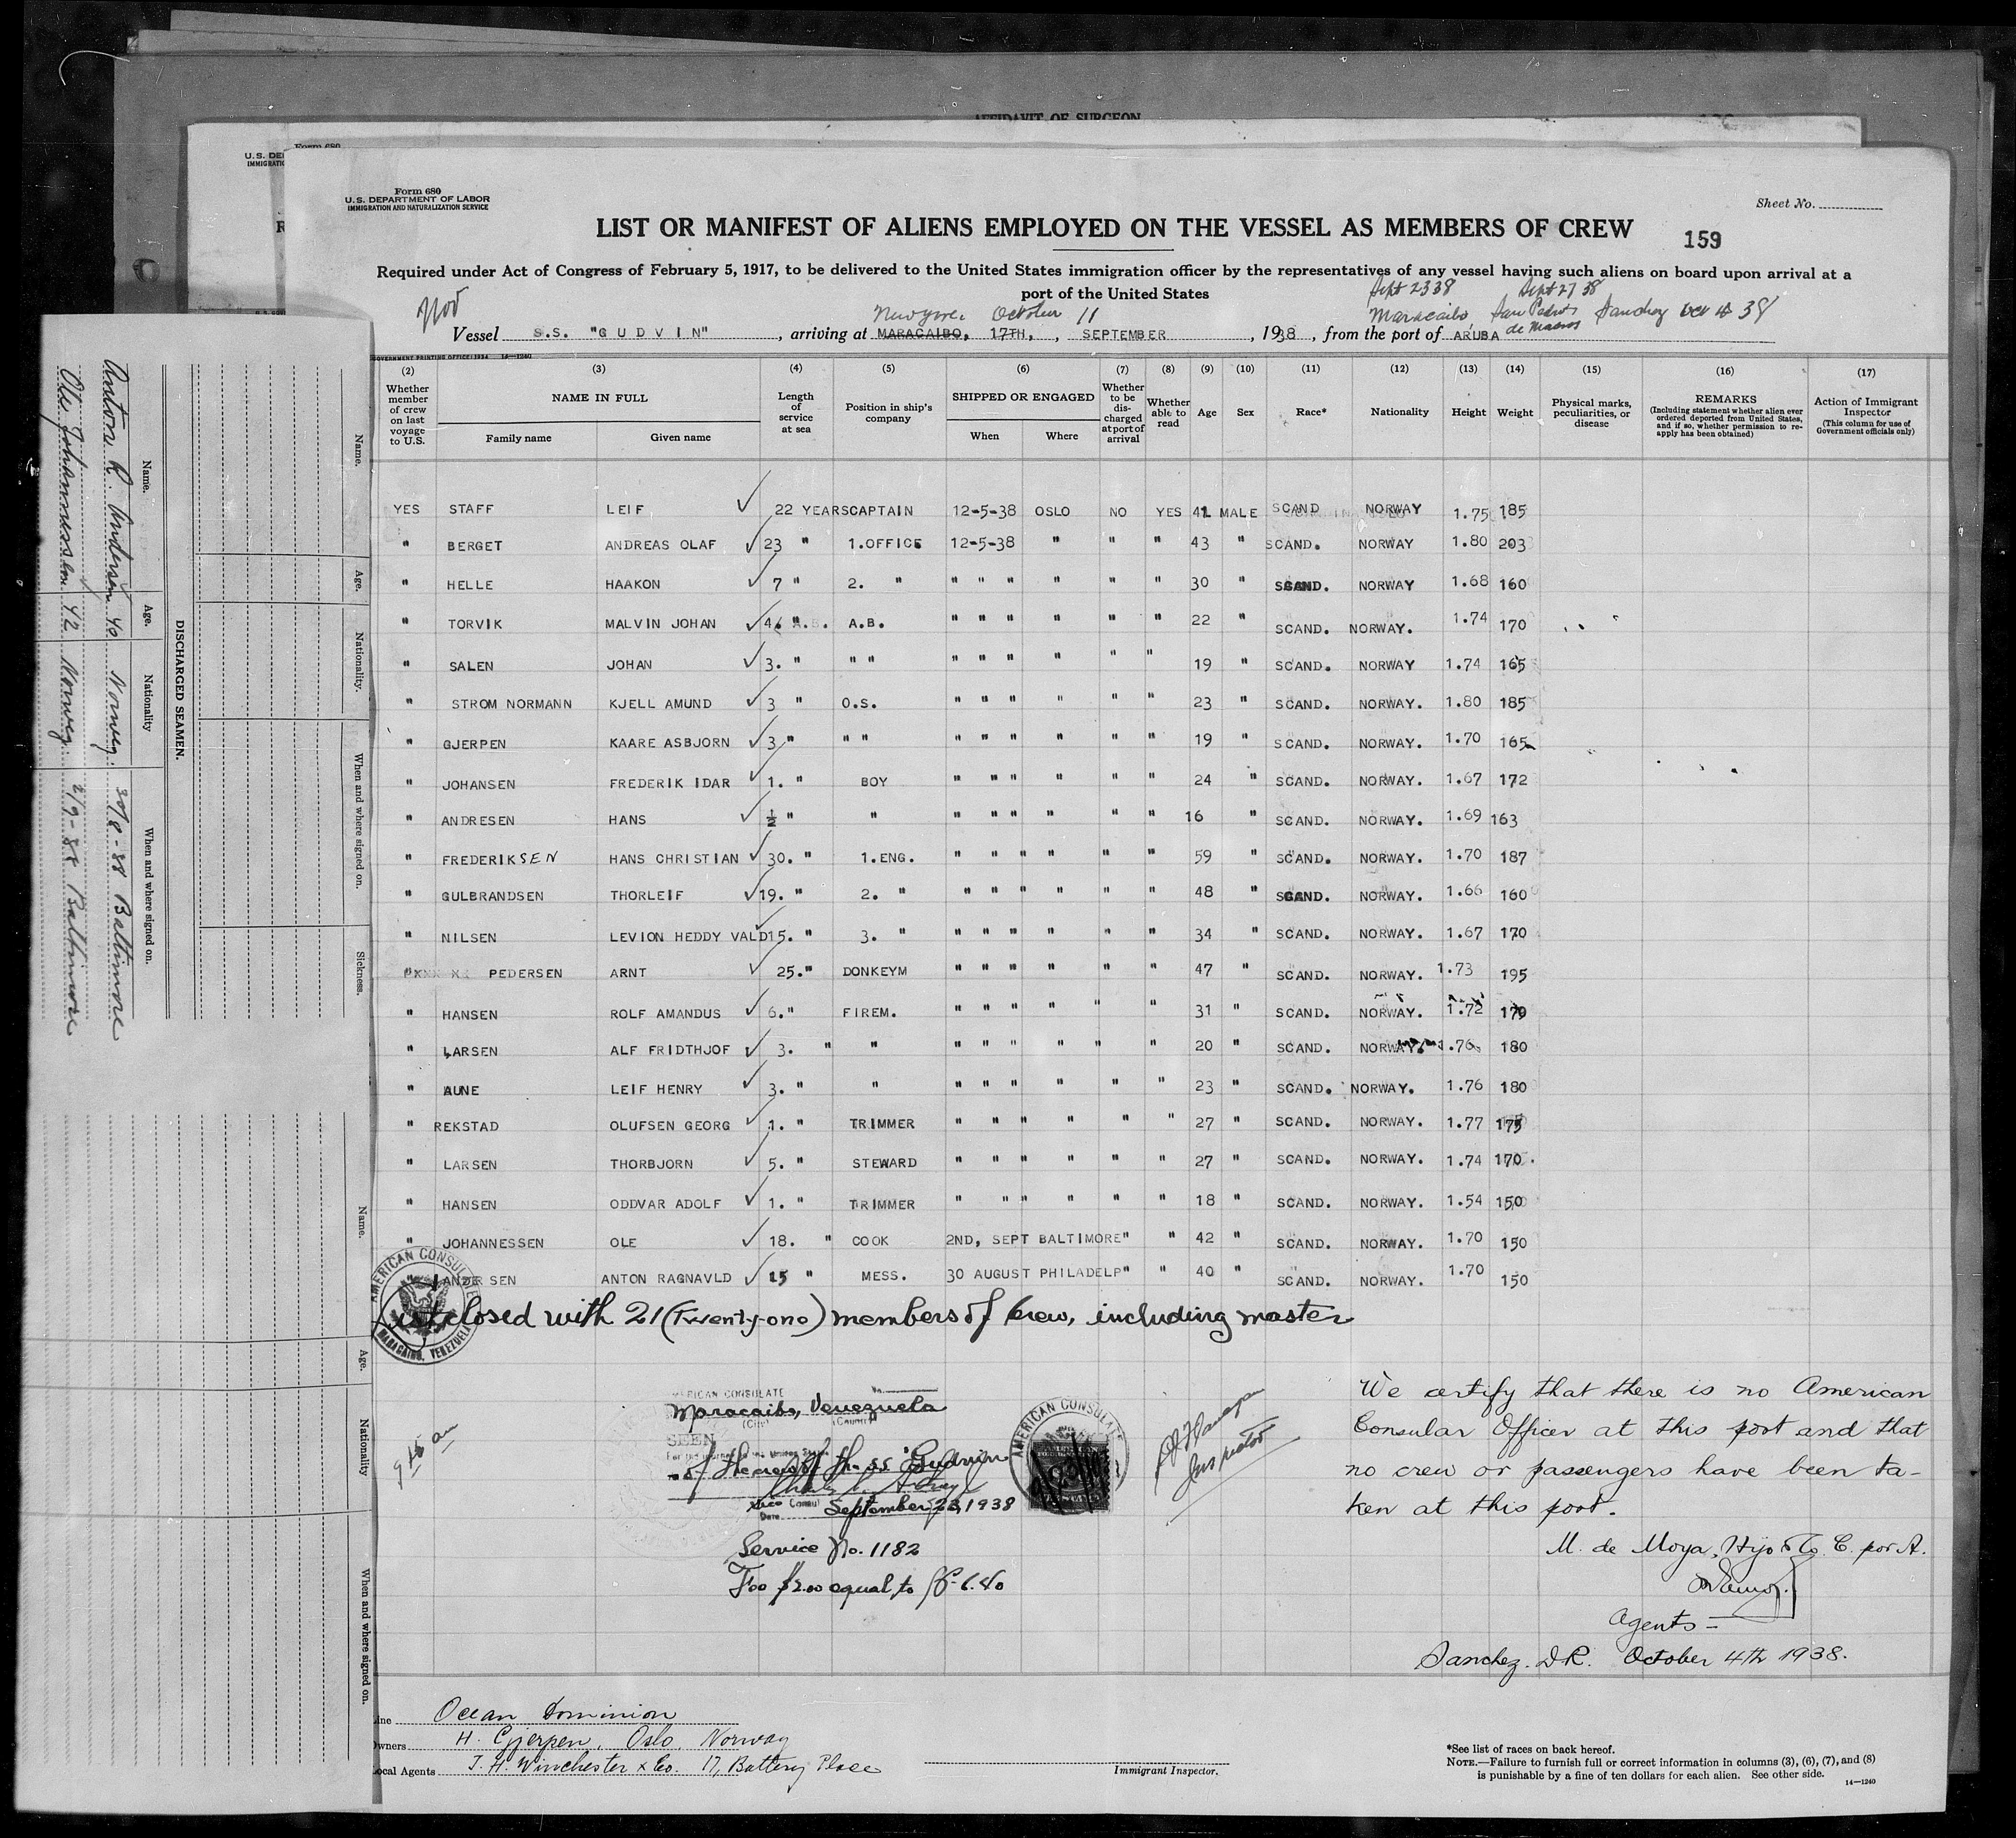 AFFIDAVIT OF SURGEON
Form 680
U.S. DE
IMMIGRATIO
Form 680
U.S. DEPARTMENT OF LABOR
IMMIGRATION AND NATURALIZATION SERVICE
Sheet No.
LIST OR MANIFEST OF ALIENS EMPLOYED ON THE VESSEL AS MEMBERS OF CREW
159
Required under Act of Congress of February 5, 1917, to be delivered to the United States immigration officer by the representatives of any vessel having such aliens on board upon arrival at a
port of the United States
Sept 23 38 Sept 27 38
Nov October 11 Maracaibo San Pedro de Macoris Sanchez Oct 4 38
Vessel S.S. "GUDVIN", arriving at MARACAIBO, 17TH, SEPTEMBER, 1938, from the port of ARUBA
GOVERNMENT PRINTING OFFICE: 1934 14—1240
(2) (3) (4) (5) (6) (7) (8) (9) (10) (11) (12) (13) (14) (15) (16) (17)
Whether member of crew on last voyage to U.S.
NAME IN FULL
Family name Given name
Length of service at sea
Position in ship's company
SHIPPED OR ENGAGED
When Where
Whether to be discharged at port of arrival
Whether able to read
Age Sex Race* Nationality Height Weight
Physical marks, peculiarities, or disease
REMARKS
(Including statement whether alien ever ordered deported from United States, and if so, whether permission to reapply has been obtained)
Action of Immigrant Inspector
(This column for use of Government officials only)
YES STAFF LEIF 22 YEARS CAPTAIN 12-5-38 OSLO NO YES 41 MALE SCAND NORWAY 1.75 185
" BERGET ANDREAS OLAF 23 " 1.OFFICE 12-5-38 " " " 43 " SCAND. NORWAY 1.80 203
" HELLE HAAKON 7 " 2. " " " " " " " 30 " SCAND. NORWAY 1.68 160
" TORVIK MALVIN JOHAN 4. " A.B. " " " " " " 22 " SCAND. NORWAY. 1.74 170
" SALEN JOHAN 3. " " " " " " " " " 19 " SCAND. NORWAY 1.74 165
" STROM NORMANN KJELL AMUND 3 " O.S. " " " " " " 23 " SCAND. NORWAY. 1.80 185
" GJERPEN KAARE ASBJORN 3 " " " " " " " " " 19 " SCAND. NORWAY. 1.70 165
" JOHANSEN FREDERIK IDAR 1. " BOY " " " " " " 24 " SCAND. NORWAY. 1.67 172
" ANDRESEN HANS ½ " " " " " " " " 16 " SCAND. NORWAY. 1.69 163
" FREDERIKSEN HANS CHRISTIAN 30. " 1.ENG. " " " " " " 59 " SCAND. NORWAY. 1.70 187
" GULBRANDSEN THORLEIF 19. " 2. " " " " " " " 48 " SCAND. NORWAY. 1.66 160
" NILSEN LEVION HEDDY VALD 15. " 3. " " " " " " " 34 " SCAND. NORWAY. 1.67 170
" PEDERSEN ARNT 25. " DONKEYM " " " " " " 47 " SCAND. NORWAY. 1.73 195
" HANSEN ROLF AMANDUS 6. " FIREM. " " " " " " 31 " SCAND. NORWAY. 1.72 179
" LARSEN ALF FRIDTHJOF 3. " " " " " " " " 20 " SCAND. NORWAY. 1.76 180
" AUNE LEIF HENRY 3. " " " " " " " " 23 " SCAND. NORWAY. 1.76 180
" REKSTAD OLUFSEN GEORG 1. " TRIMMER " " " " " " 27 " SCAND. NORWAY. 1.77 175
" LARSEN THORBJORN 5. " STEWARD " " " " " " 27 " SCAND. NORWAY. 1.74 170.
" HANSEN ODDVAR ADOLF 1. " TRIMMER " " " " " " 18 " SCAND. NORWAY. 1.54 150
" JOHANNESSEN OLE 18. " COOK 2ND, SEPT BALTIMORE " " 42 " SCAND. NORWAY. 1.70 150
ANDERSEN ANTON RAGNAVLD 15 " MESS. 30 AUGUST PHILADELP " " 40 " SCAND. NORWAY. 1.70 150
List closed with 21 (Twenty-one) members of crew, including master
AMERICAN CONSULATE MARACAIBO, VENEZUELA
9 15 am
AMERICAN CONSULATE
Maracaibo, Venezuela
(City) (Country)
SEEN
For the journey to the United States
of the crew of the SS Gudvin
Vice Consul
Date September 23, 1938
Service No. 1182
Fee $2.00 equal to
AMERICAN CONSULATE
Inspector
We certify that there is no American
Consular Officer at this port and that
no crew or passengers have been ta-
ken at this port.
M. de Moya, Hijo & Co. C. por A.
Agents –
Sanchez. D.R. October 4th 1938.
Line Ocean Dominion
Owners H. Gjerpen, Oslo, Norway
Local Agents J. H. Winchester & Co. 17, Battery Place
Immigrant Inspector.
*See list of races on back hereof.
NOTE.—Failure to furnish full or correct information in columns (3), (6), (7), and (8)
is punishable by a fine of ten dollars for each alien. See other side.
14—1240
DISCHARGED SEAMEN.
Name. Age. Nationality When and where signed on.
Anton R. Andersen 40 Norweg. 30/8-38 Baltimore
Ole Johannessen 42 Norweg. 2/9-38 Baltimore
Name. Age. Nationality. When and where signed on. Sickness.
Name. Age. Nationality When and where signed on.